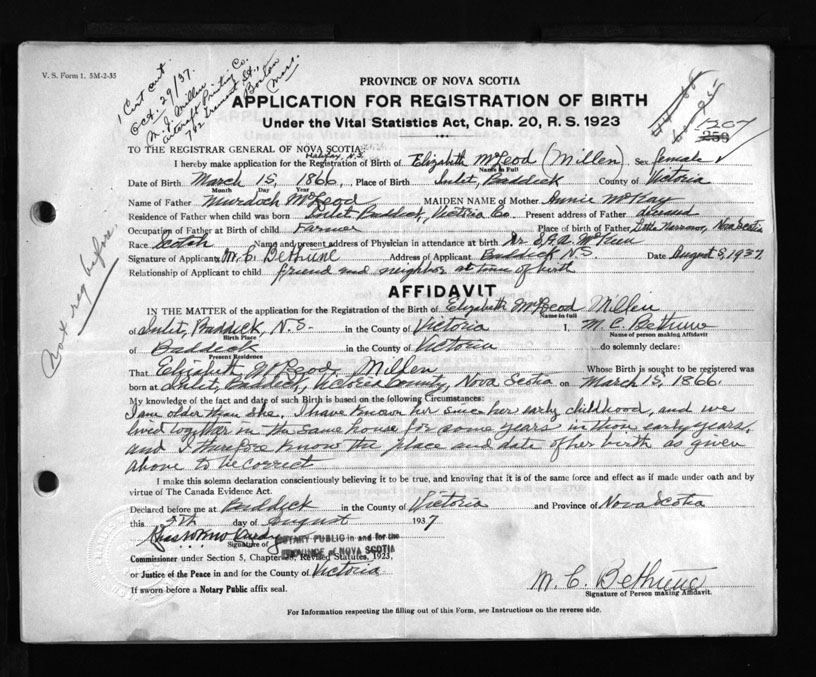 V. S. Form 1. 5M-2-35
1 Cert sent
Oct. 29/37.
M. J. Millen
Artcraft Printing Co.
782 Tremont St.,
Boston
Mass.
PROVINCE OF NOVA SCOTIA
APPLICATION FOR REGISTRATION OF BIRTH
Under the Vital Statistics Act, Chap. 20, R. S. 1923
1207
259
TO THE REGISTRAR GENERAL OF NOVA SCOTIA
Halifax, N.S.
I hereby make application for the Registration of Birth of Elizabeth McLeod (Millen) Sex female
Name in Full
Date of Birth March 15, 1866, Place of Birth Inlet, Baddeck County of Victoria
Month Day Year
Name of Father Murdoch McLeod MAIDEN NAME of Mother Annie McKay
Residence of Father when child was born Inlet Baddeck, Victoria Co. Present address of Father deceased
Occupation of Father at Birth of Child Farmer Place of Birth of Father, Little Narrows, Nova Scotia
Race Scotch Name and present address of Physician in attendance at birth Dr S.G.A. McKeen
Signature of Applicant M. C. Bethune Address of Applicant Baddeck N.S. Date August 5, 1937.
Relationship of Applicant to child friend and neighbor at time of birth
Not reg before.
AFFIDAVIT
IN THE MATTER of the application for the Registration of the Birth of Elizabeth McLeod Millen
Name in full
of Inlet, Baddeck, N.S. in the County of Victoria I, M. C. Bethune
Birth Place Name of person making Affidavit
of Baddeck in the County of Victoria do solemnly declare:
Present Residence
That Elizabeth McLeod Millen Whose Birth is sought to be registered was
born at Inlet, Baddeck, Victoria County, Nova Scotia on March 15, 1866.
My knowledge of the fact and date of such Birth is based on the following Circumstances:
I am older than she. I have known her since her early childhood, and we
lived together in the same house for some years in those early years,
and I therefore know the place and date of her birth as given
above to be correct
I make this solemn declaration conscientiously believing it to be true, and knowing that it is of the same force and effect as if made under oath and by
virtue of The Canada Evidence Act.
Declared before me at Baddeck in the County of Victoria and Province of Nova Scotia
this 5th day of August 1937
Signature of NOTARY PUBLIC in and for the
PROVINCE of NOVA SCOTIA
Commissioner under Section 5, Chapter 38, Revised Statutes, 1923,
or Justice of the Peace in and for the County of Victoria
M. C. Bethune
Signature of Person making Affidavit.
If sworn before a Notary Public affix seal.
For Information respecting the filling out of this Form, see Instructions on the reverse side.